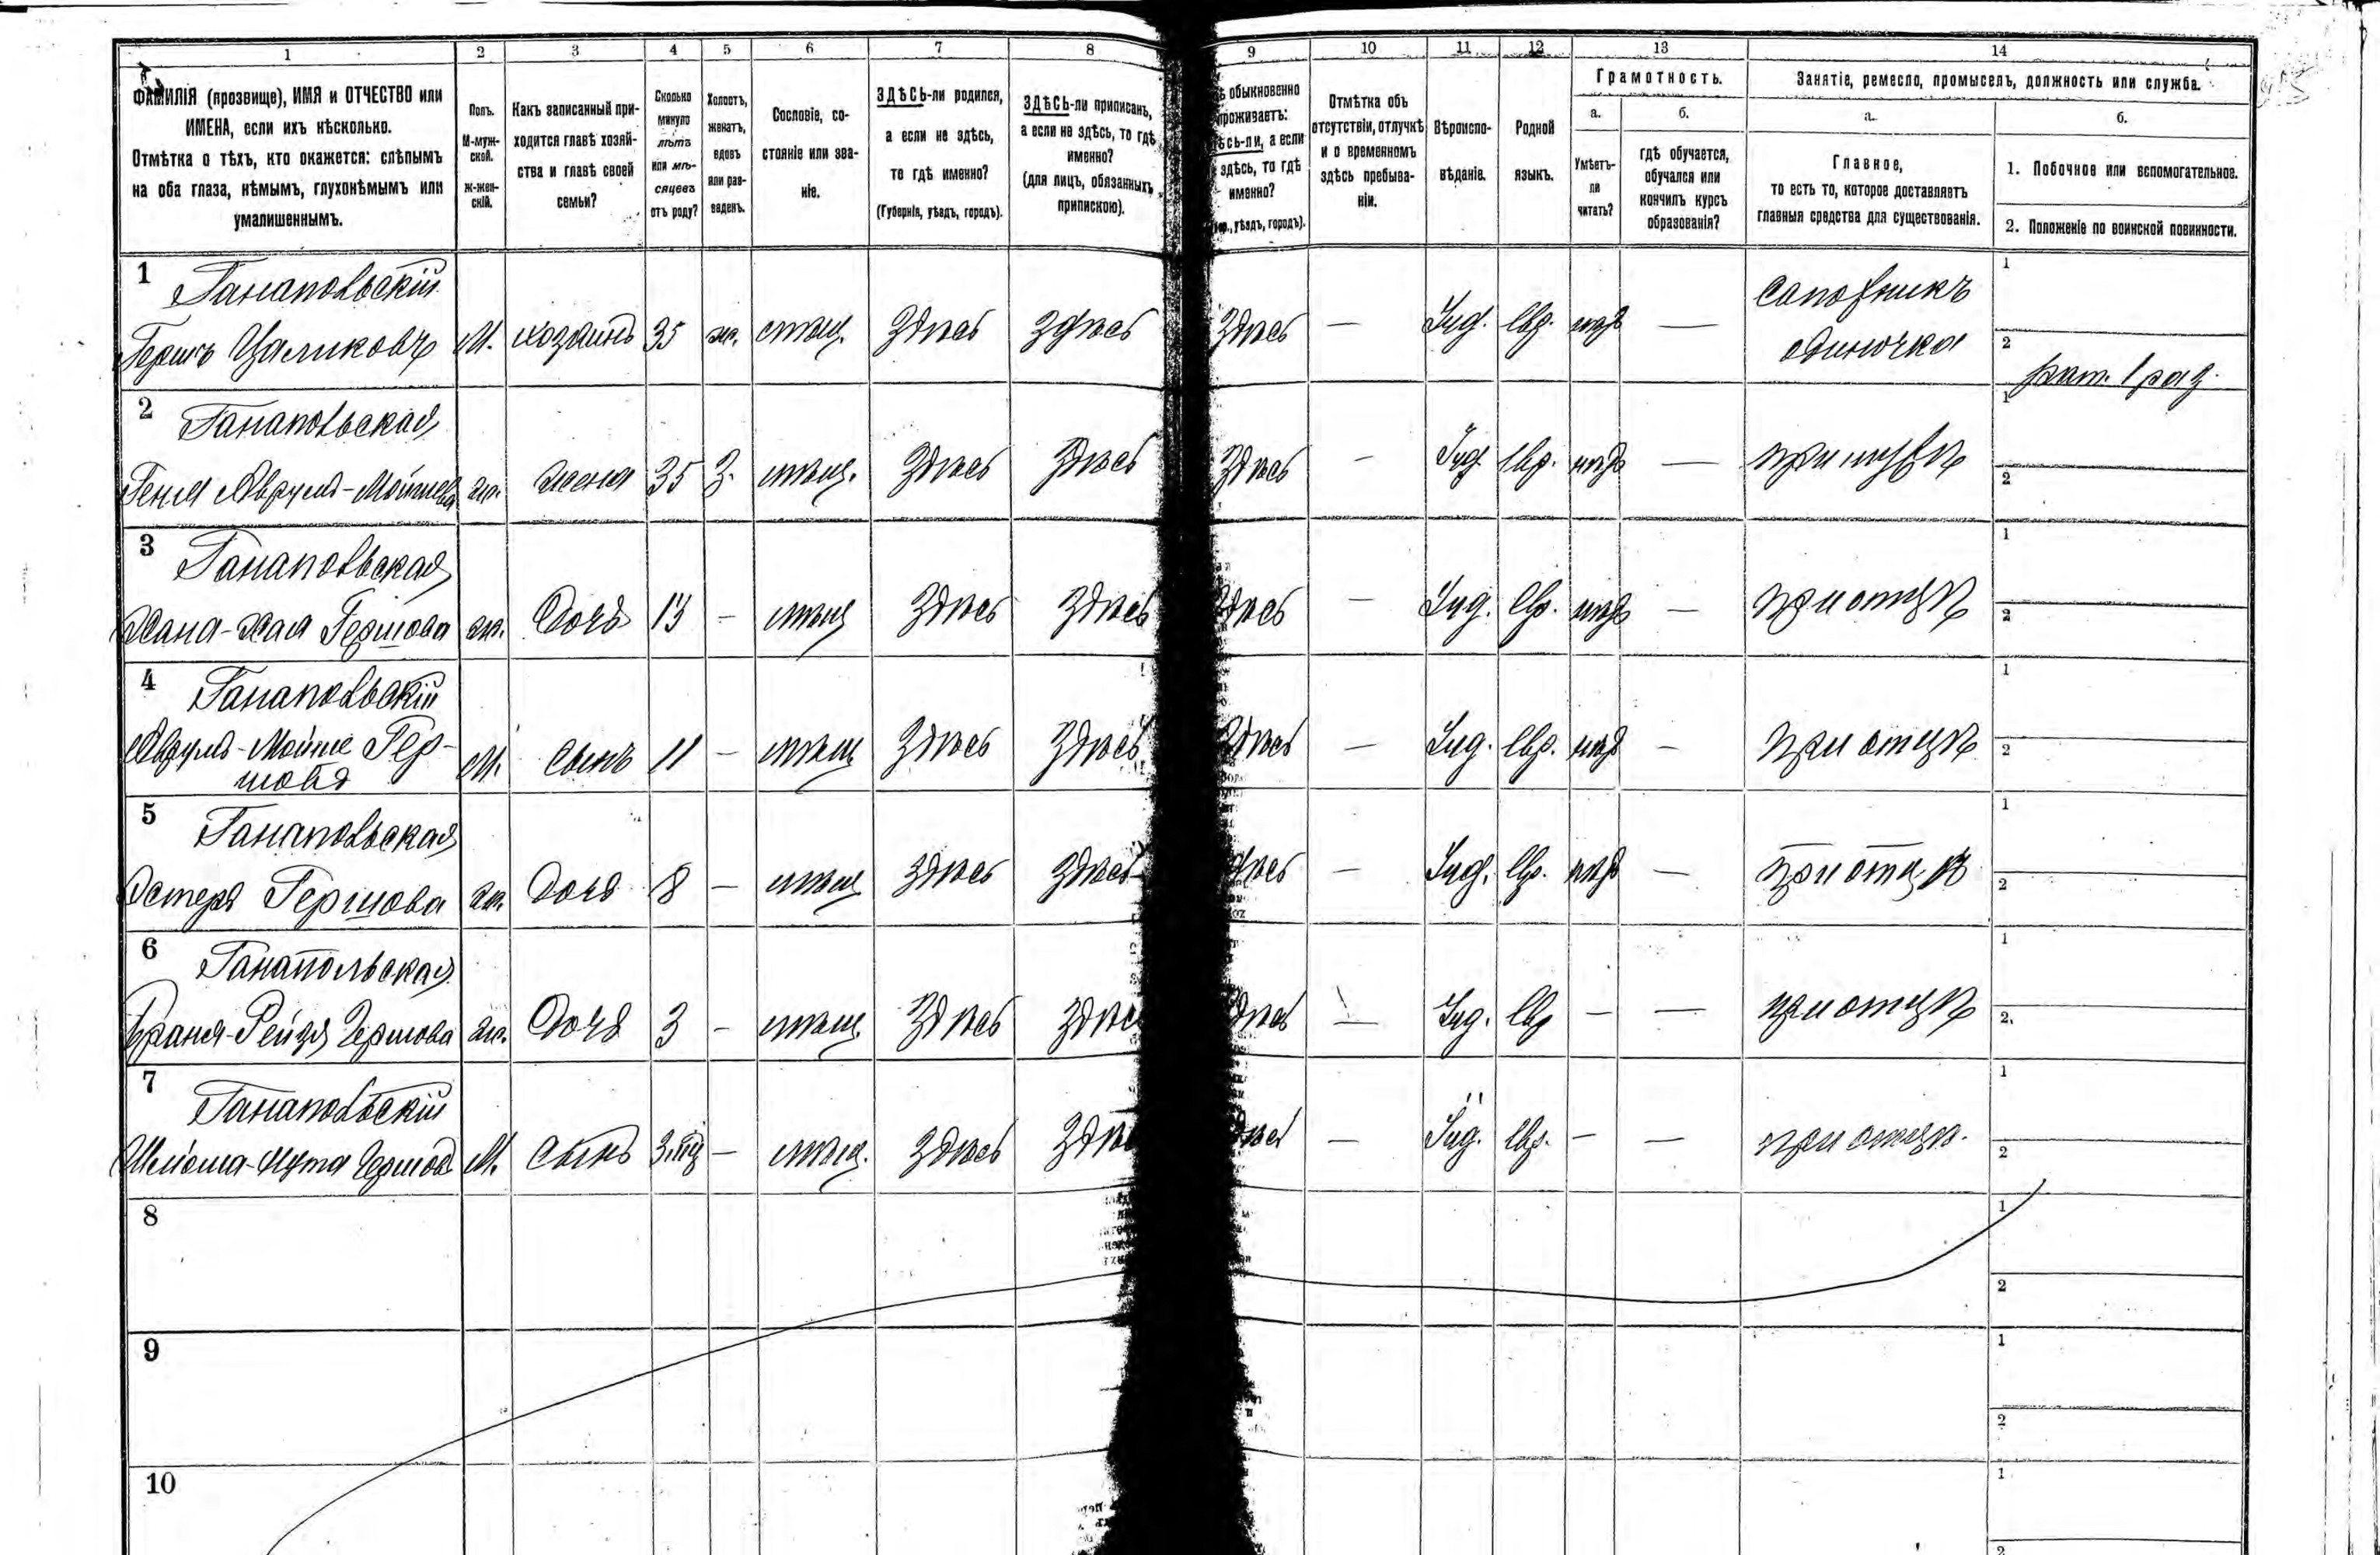 1 2 3 4 5 6 7 8 9 10 11 12 13 14
ФАМИЛІЯ (прозвище), ИМЯ и ОТЧЕСТВО или
ИМЕНА, если ихъ нѣсколько.
Отмѣтка о тѣхъ, кто окажется: слѣпымъ
на оба глаза, нѣмымъ, глухонѣмымъ или
умалишеннымъ.
Полъ.
М-муж-
ской.
Ж-жен-
скій.
Какъ записанный при-
ходится главѣ хозяй-
ства и главѣ своей
семьи?
Сколько
минуло
лѣтъ
или мѣ-
сяцевъ
отъ роду?
Холостъ,
женатъ,
вдовъ
или раз-
веденъ.
Сословіе, со-
стояніе или зва-
ніе.
ЗДѢСЬ-ли родился,
а если не здѣсь,
то гдѣ именно?
(Губернія, уѣздъ, городъ).
ЗДѢСЬ-ли приписанъ,
а если не здѣсь, то гдѣ
именно?
(для лицъ, обязанныхъ
припискою).
обыкновенно
проживаетъ:
а если
здѣсь, то гдѣ
именно?
уѣздъ, городъ).
Отмѣтка объ
отсутствіи, отлучкѣ
и о временномъ
здѣсь пребыва-
ніи.
Вѣроиспо-
вѣданіе.
Родной
языкъ.
Грамотность.
а.
Умѣетъ-
ли
читать?
б.
гдѣ обучается,
обучался или
кончилъ курсъ
образованія?
Занятіе, ремесло, промыселъ, должность или служба.
а.
Главное,
то есть то, которое доставляетъ
главныя средства для существованія.
б.
1. Побочное или вспомогательное.
2. Положеніе по воинской повинности.
1 Ганапольскій
Гершъ М. хозяинъ 35 ж. мѣщ. здѣсь здѣсь здѣсь — Іуд. Евр. нѣтъ — сапожникъ 1
одиночка 2
рат. 1 раз.
2 Ганапольская
Геня Аврумъ-Мойшева ж. жена 35 З. мѣщ. здѣсь здѣсь здѣсь — Іуд. Евр. нѣтъ — при мужѣ 1 2
3 Ганапольская
Хана-Хая Гершова ж. Дочь 13 — мѣщ здѣсь здѣсь здѣсь — Іуд. Евр. нѣтъ — при отцѣ 1 2
4 Ганапольскій
Аврумъ-Мойше Гер-
шовъ М. сынъ 11 — мѣщ здѣсь здѣсь здѣсь — Іуд. Евр. нѣтъ — при отцѣ 1 2
5 Ганапольская
Эстеръ Гершова ж. Дочь 8 — мѣщ здѣсь здѣсь здѣсь — Іуд. Евр. нѣтъ — при отцѣ 1 2
6 Ганапольская
Рейзя Гершова ж. Дочь 3 — мѣщ. здѣсь здѣсь здѣсь — Іуд. Евр — — при отцѣ 1 2.
7 Ганапольскій
Гершов М. сынъ 3 мѣ — мѣщ. здѣсь здѣсь здѣсь — Іуд. Евр. — — при отцѣ. 1 2
8 1 2
9 1 2
10 1 2